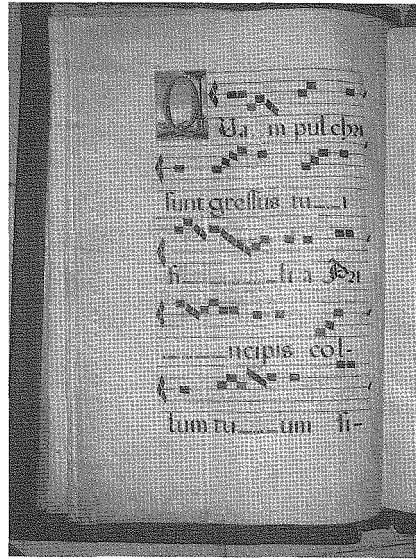 QUa_m pulchri
sunt gressus tu__i
fi________li a Pri
______ncipis col-
lum tu___um si-